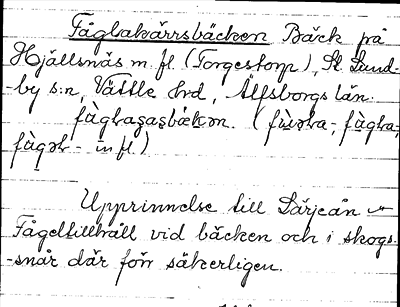 Fåglakärrsbäcken Bäck på
Hjällsnäs m. fl. (Torgestorp), St. Lund-
-by s:n, Vättle hrd, Älfsborgs län.
fàglaʂaʂbäkən. (fùɷla-, fàgla-,
fàgəl- in fl.)
Upprinnelse till Lärjeån
Fågeltillhåll vid bäcken och i skogs-
-snår där förr säkerligen.